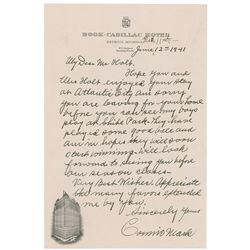 BOOK-CADILLAC HOTEL
DETROIT, MICHIGAN
June 12th 1941
My Dear Mr Holt
Hope you and
Mrs Holt enjoyed your stay
at Atlantic City. Am sorry
you are leaving for your home
before you can see my boys
play at Shibe Park. They have
played some good ball and
am in hopes they will soon
start winning. Will look
forward to seeing you before
our season closes.
Very Best Wishes. Appreciate
the many favors extended
me by you.
Sincerely Yours
Connie Mack